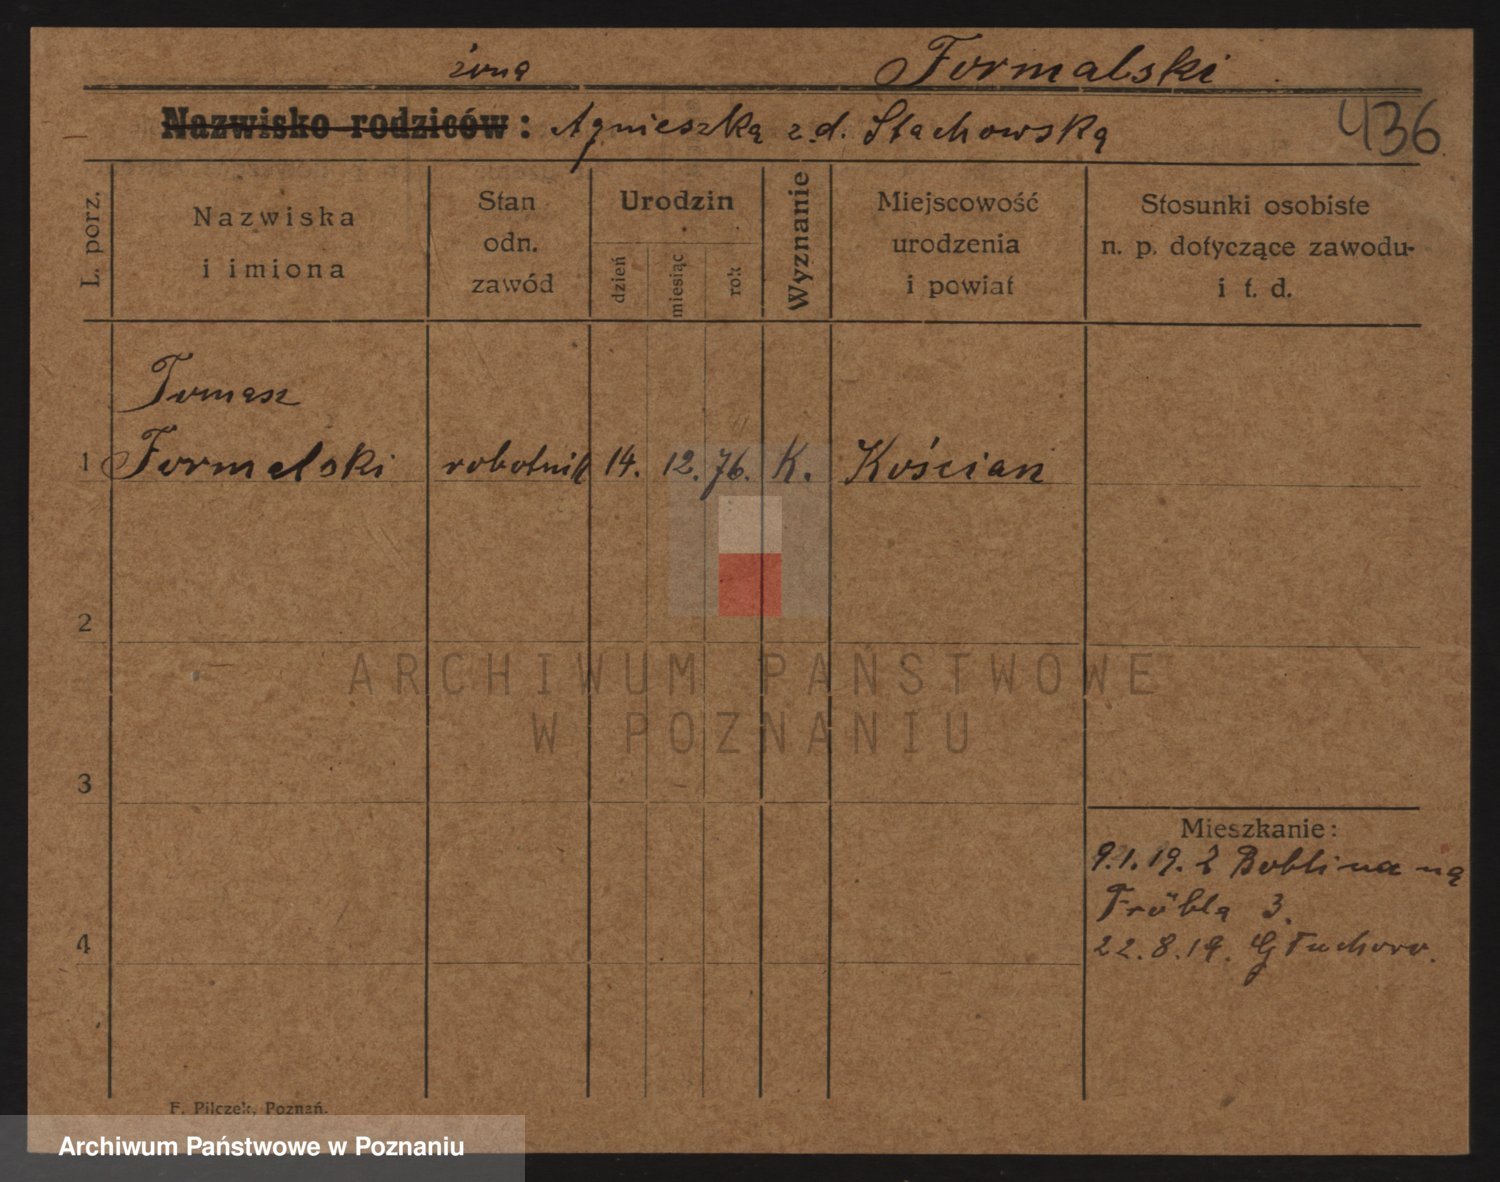 żona Formalski
Nazwisko rodziców : Agnieszka z d. Stachowska
436
L. porz.
Nazwiska
i imiona
Stan
odn.
zawód
Urodzin
dzień
miesiąc
rok
Wyznanie
Miejscowość
urodzenia
i powiat
Stosunki osobiste
n. p. dotyczące zawodu-
i t. d.
Tomasz
1 Formalski robotnik 14. 12. 76. K. Kościan
2
3
4
Mieszkanie :
9.1.19. z Boblina na
Fröbla 3.
22.8.19. Głuchovo.
F. Pilczek, Poznań.
ARCHIWUM PAŃSTWOWE
W POZNANIU
Archiwum Państwowe w Poznaniu